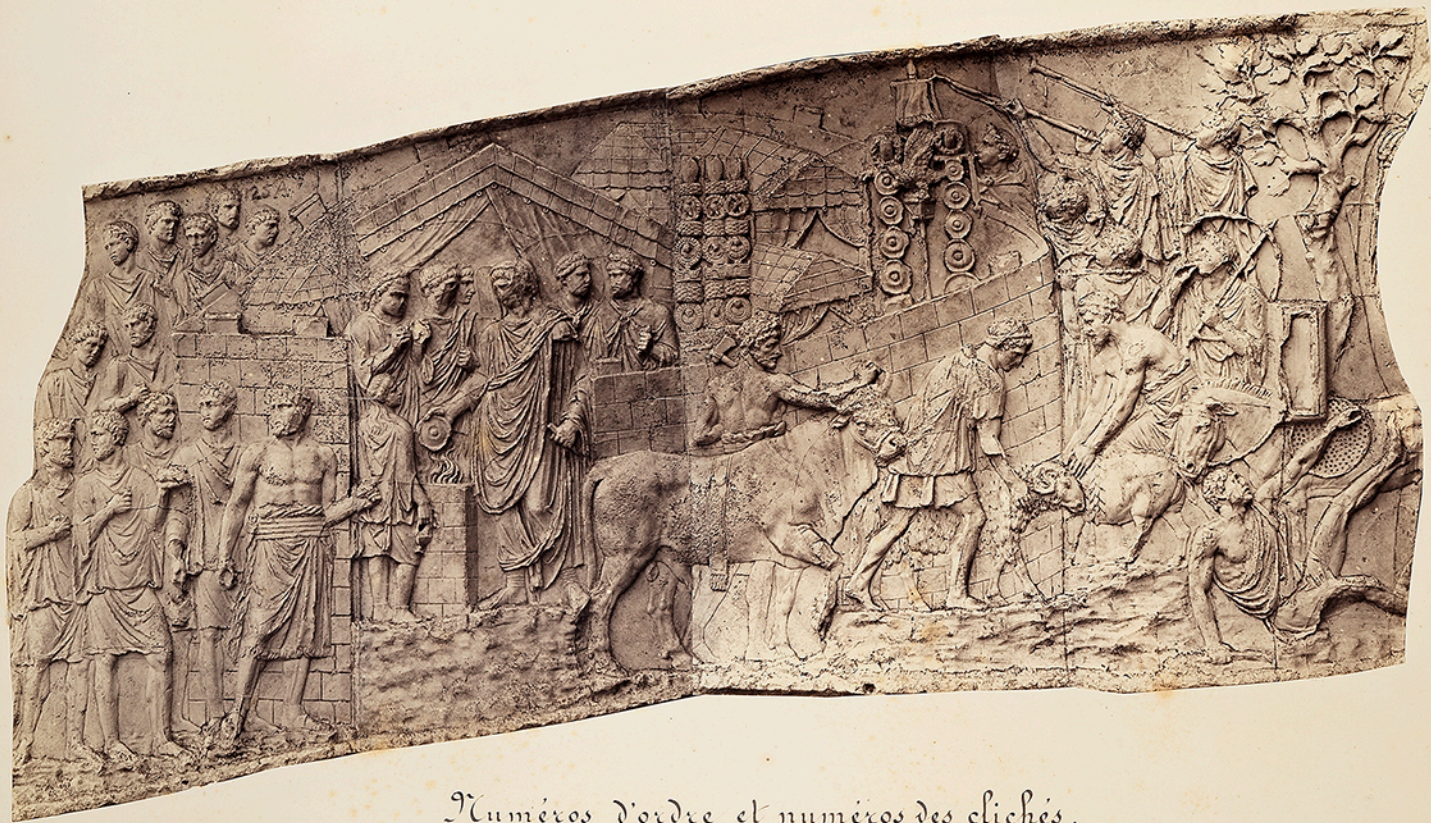 25 A.
Numéros d'ordre et numéros des clichés.